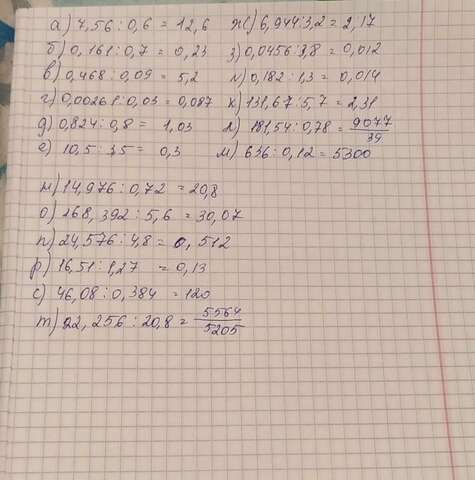 а) 7,56 : 0,6 = 12,6 ж) 6,944:3,2 = 2,17
б) 0,161 : 0,7 = 0,23 з) 0,0456:3,8 = 0,012
в) 0,468 : 0,09 = 5,2 и) 0,182 : 1,3 = 0,014
г) 0,00261 : 0,03 = 0,087 к) 131,67 : 5,7 = 2,31
д) 0,824 : 0,8 = 1,03 л) 181,54 : 0,78 = 9077/39
е) 10,5 : 35 = 0,3 м) 636 : 0,12 = 5300
н) 14,976 : 0,72 = 20,8
о) 168,392 : 5,6 = 30,07
п) 24,576 : 4,8 = 0,512
р) 16,51 : 1,27 = 0,13
с) 46,08 : 0,384 = 120
т) 22,256 : 20,8 = 5564/5205